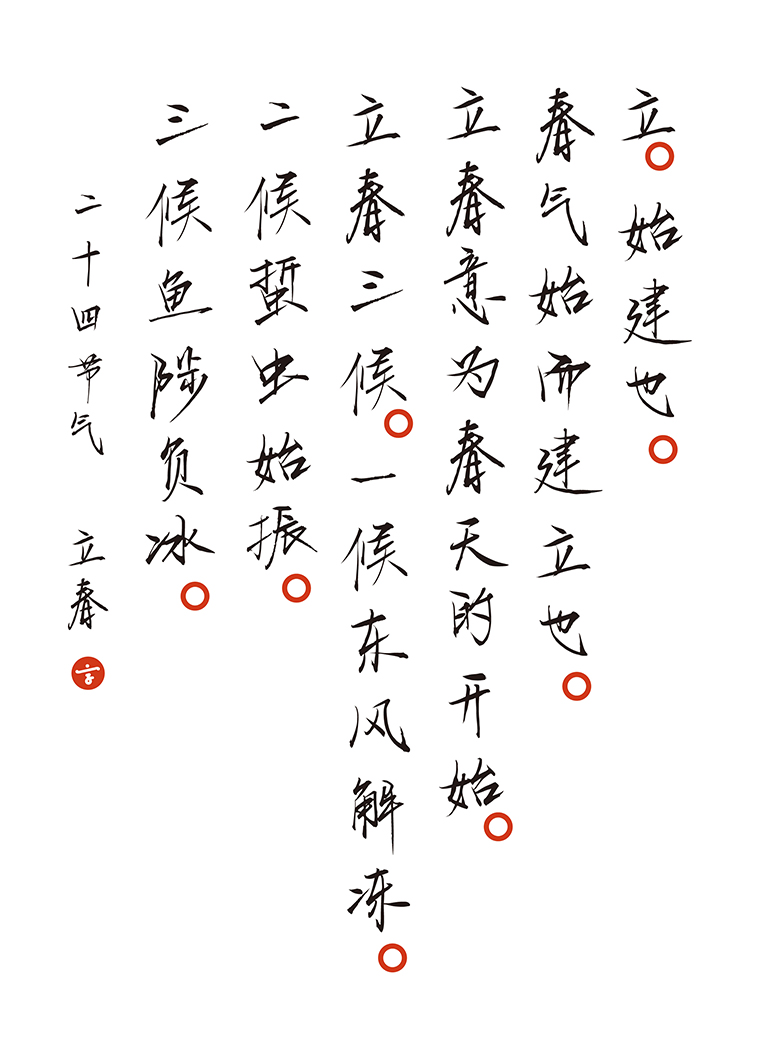 立。始建也。
春气始而建立也。
立春意为春天的开始。
立春三候。一候东风解冻。
二候蜇虫始振。
三候鱼陟负冰。
二十四节气 立春